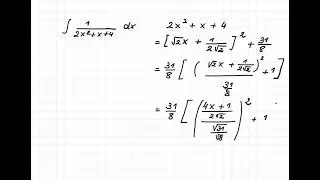 ∫ 1/(2x²+x+4) dx
2x² + x + 4
= [√2x + 1/(2√2)]² + 31/8
= 31/8 [ (√2x + 1/(2√2))²/(31/8) + 1 ]
= 31/8 [ ( ((4x + 1)/(2√2)) / (√31/√8) )² + 1